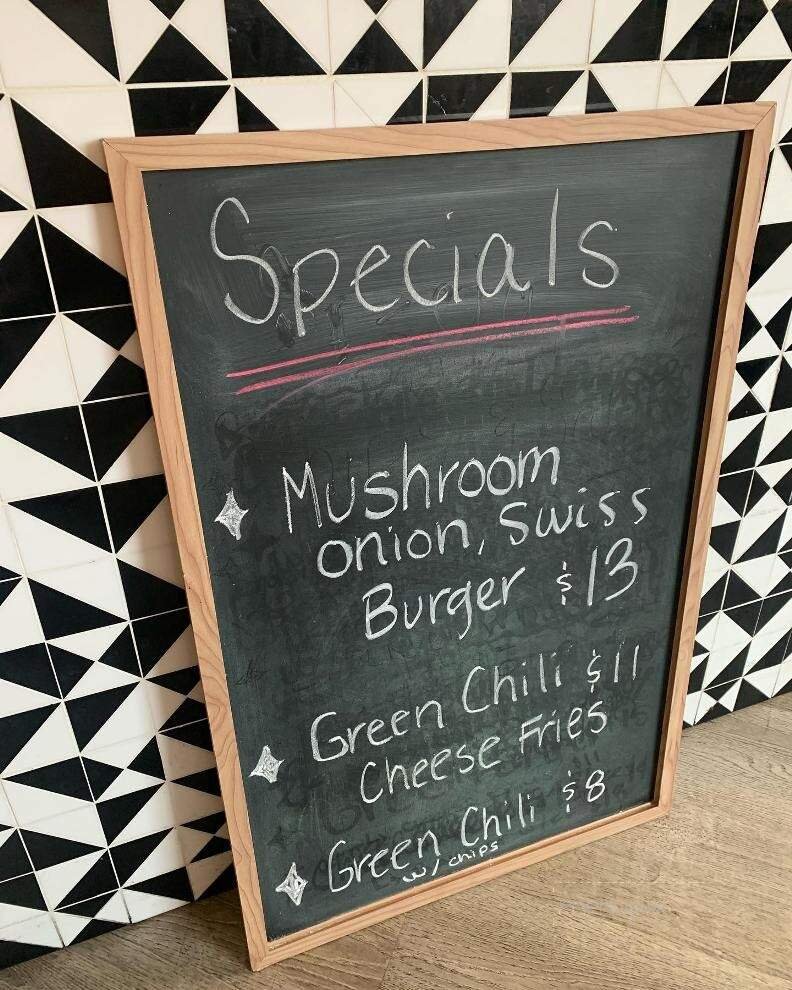 Specials
Mushroom
onion, Swiss
Burger $13
Green Chili $11
Cheese Fries
Green Chili $8
w/ chips